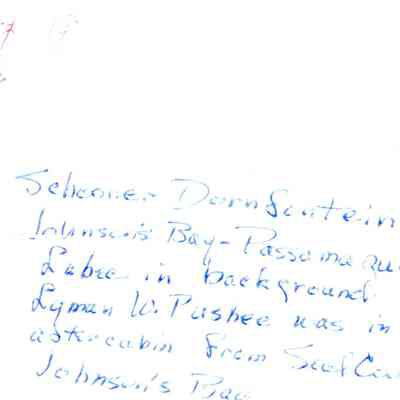 Schooner Dornfontein
Johnson's Bay - Passamaqu
Lubec in background
Lyman W. Pushee was in
aftercabin from
Johnson's Bay